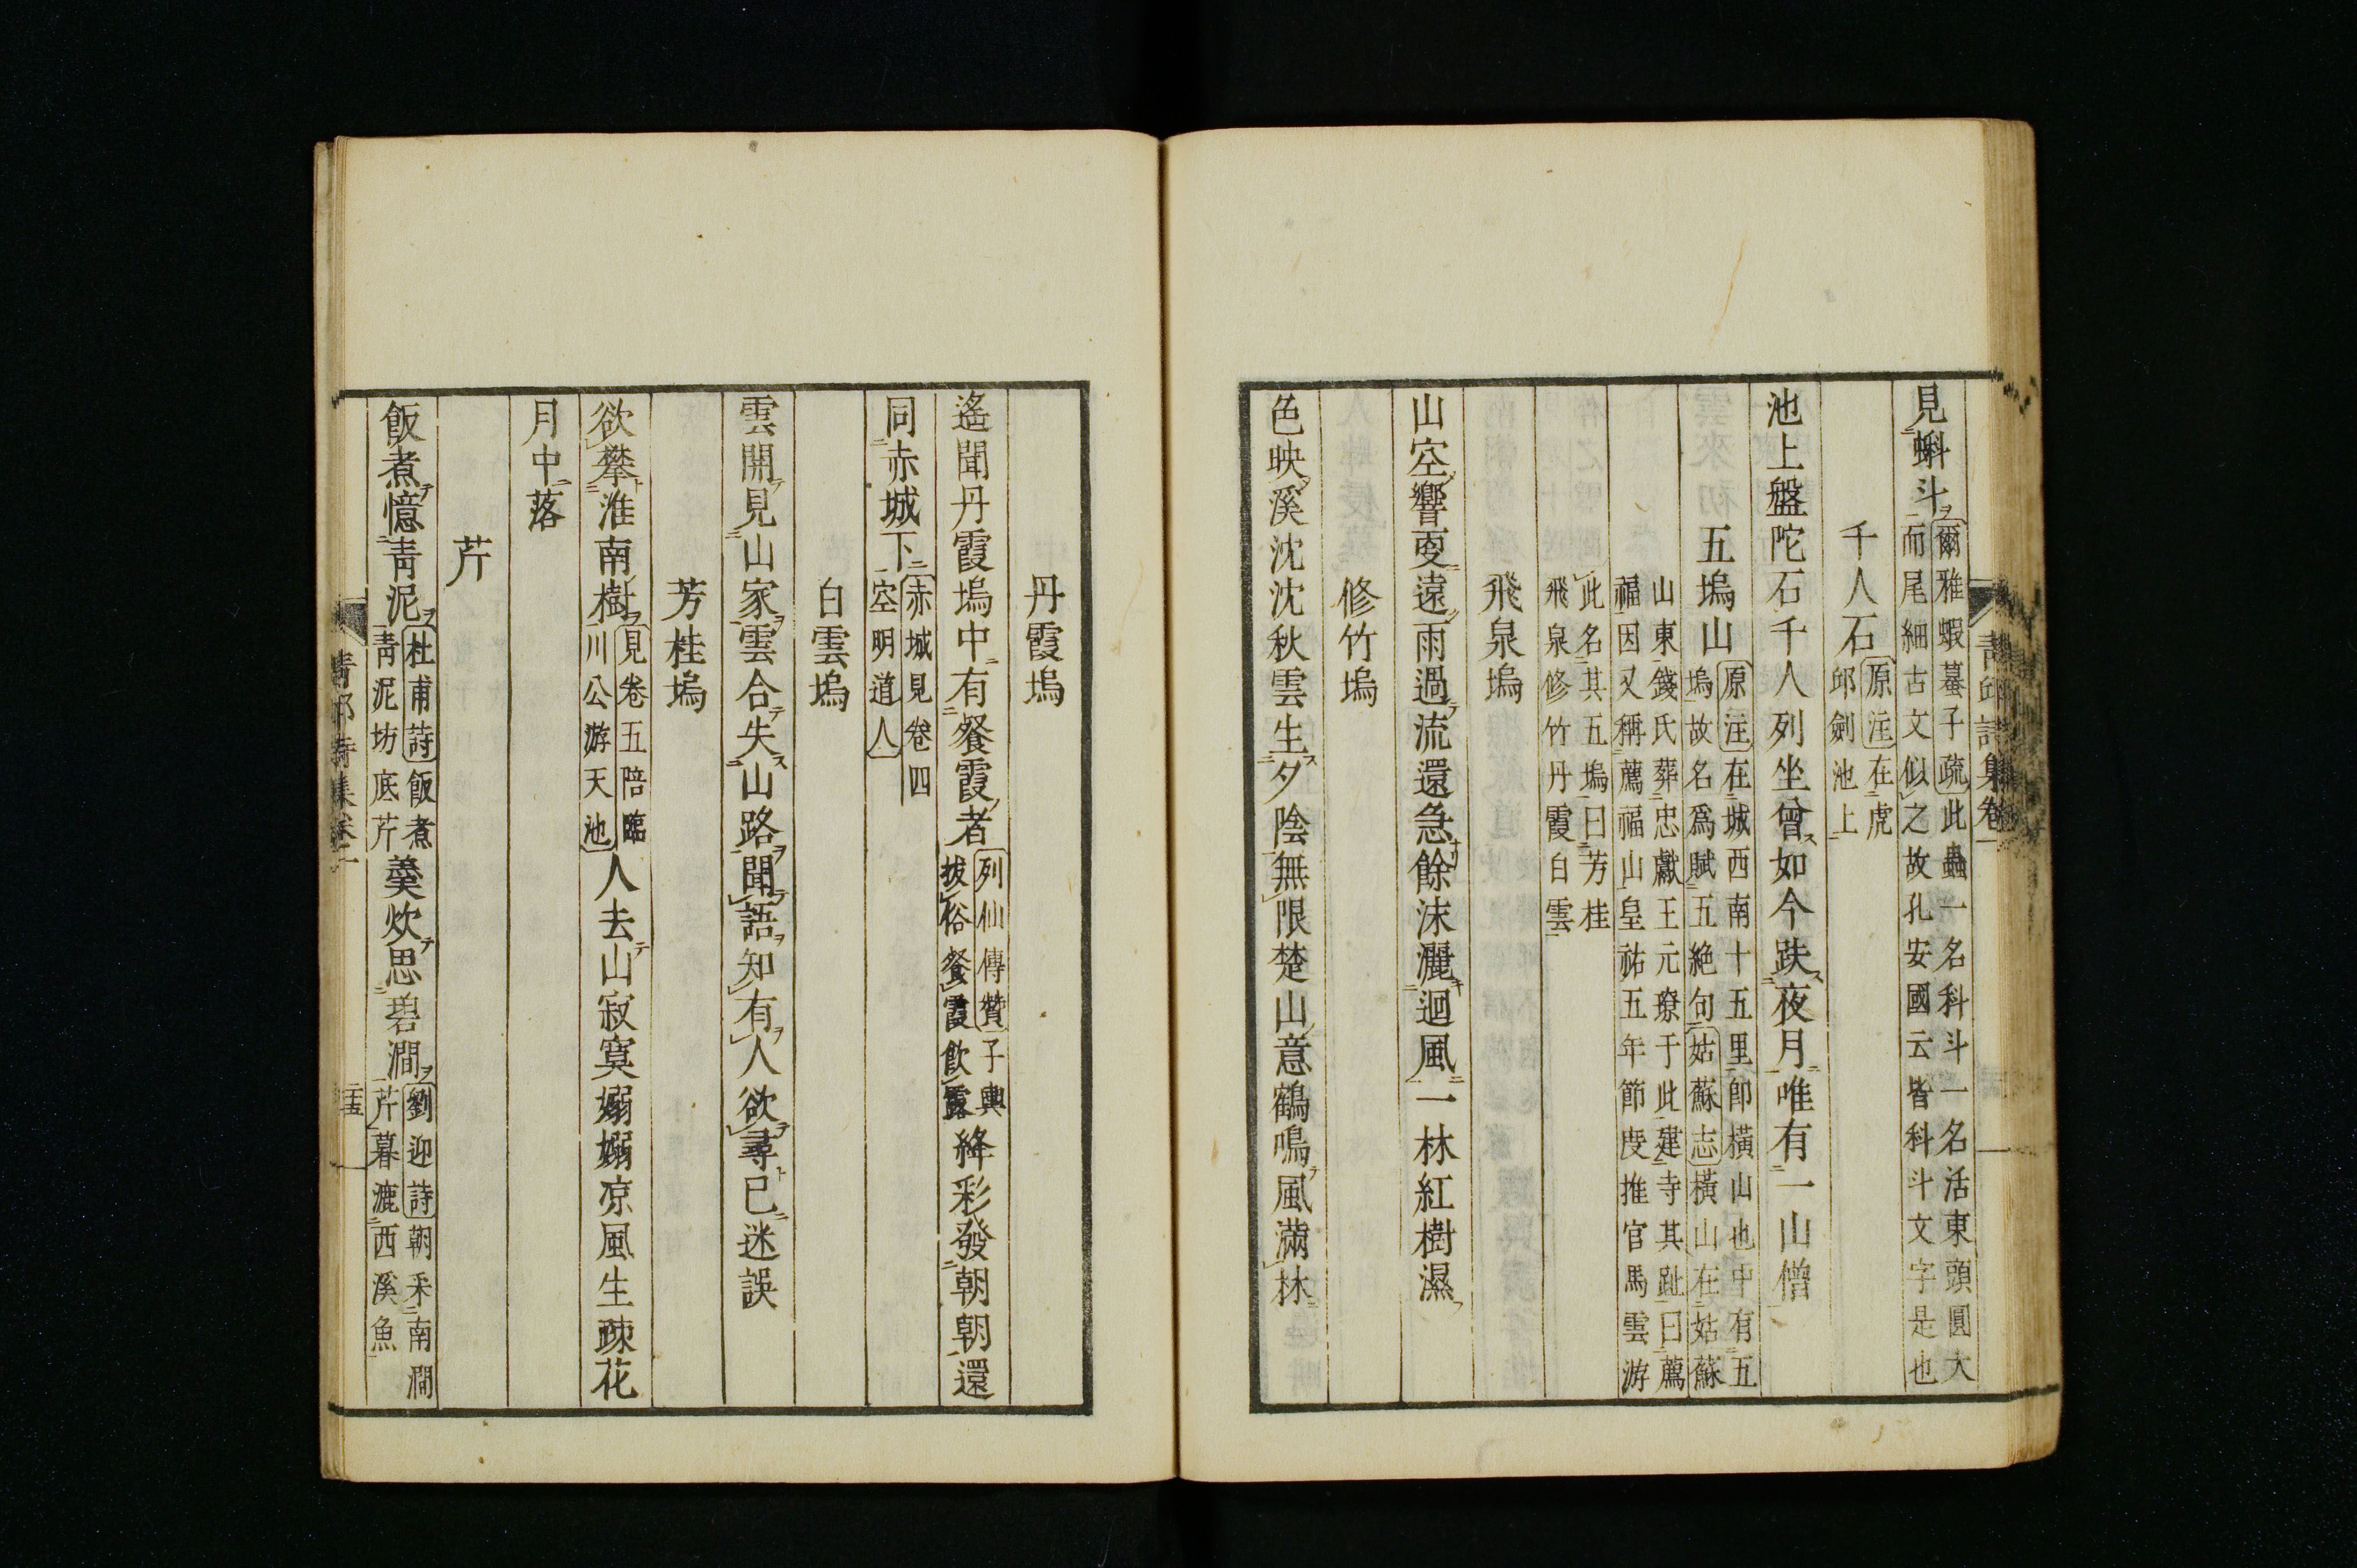 見蝌斗爾雅蝦蟇子疏此蟲一名科斗一名活東頭圓大
而尾細古文似之故孔安國云皆科斗文字是也
千人石原注在虎
邱劍池上
池上盤陀石千人列坐曾如今趺夜月唯有一山僧
五塢山原注在城西南十五里卽橫山也中有五
塢故名爲賦五絶句姑蘇志橫山在姑蘇
山東錢氏葬忠獻王元璙于此建寺其趾曰薦
福因又稱薦福山皇祐五年節度推官馬雲游
此名其五塢曰芳桂
飛泉修竹丹霞白雲
飛泉塢
山空響更遠雨過流還急餘沫灑迴風一林紅樹濕
修竹塢
色映溪沈沈秋雲生夕陰無限楚山意鶴鳴風滿林
青邱詩集卷一
丹霞塢
遙聞丹霞塢中有餐霞者列仙傳贊子輿
拔俗餐霞飮露絳彩發朝朝還
同赤城下赤城見卷四
空明道人
白雲塢
雲開見山家雲合失山路聞語知有人欲尋已迷誤
芳桂塢
欲攀淮南樹見卷五陪臨
川公游天池人去山寂寞嫋嫋凉風生疎花
月中落
芹
飯煮憶靑泥杜甫詩飯煮
靑泥坊底芹羹炊思碧澗劉迎詩朝采南澗
芹暮漉西溪魚
靑邱詩集卷一
二十五